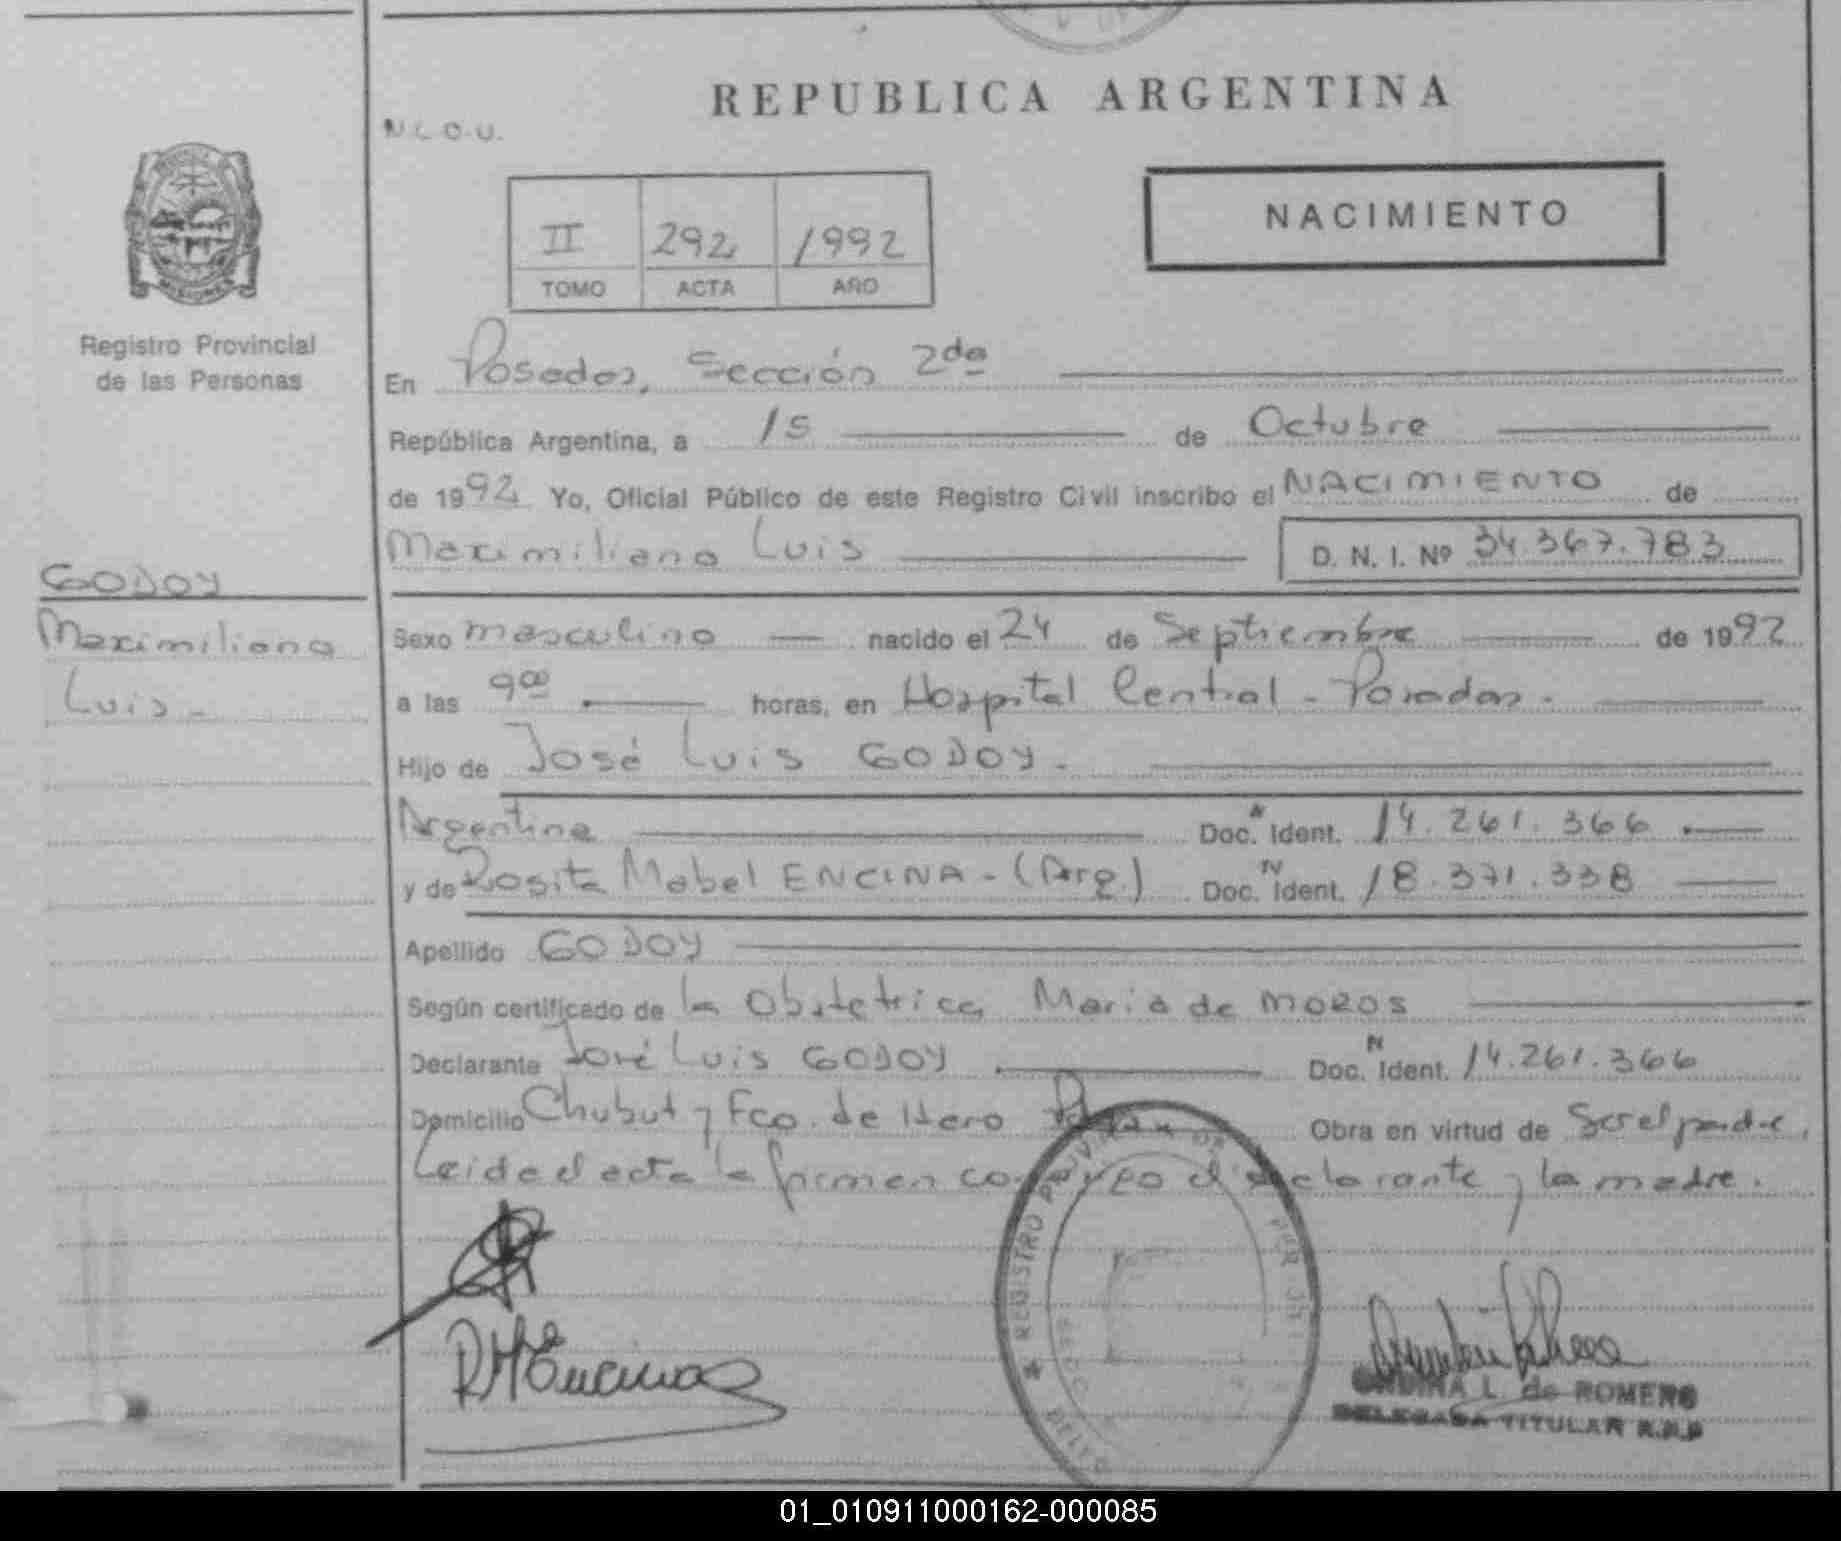 REPUBLICA ARGENTINA
N.L.O.U.
NACIMIENTO
II 292 1992
TOMO ACTA AÑO
MISIONES
Registro Provincial
de las Personas
En Posadas, Sección 2da
República Argentina, a 15 de Octubre
de 1992 Yo, Oficial Público de este Registro Civil inscribo el NACIMIENTO de
Maximiliano Luis D. N. I. Nº 34.367.783
GODOY
Maximiliano
Luis -
Sexo masculino nacido el 24 de Septiembre de 1992
a las 9 00 horas, en Hospital Central - Posadas -
Hijo de José Luis GODOY -
Argentina Doc. Ident. 14.261.366
y de Rosita Mabel ENCINA - (Arg.) Doc. Ident. 18.371.338
Apellido GODOY
Según certificado de la Obstetrica Maria de MOROS
Declarante José Luis GODOY Doc. Ident. 14.261.366
Domicilio Chubut y Fco. de Haro Obra en virtud de Ser el padre.
Leida el acta la firman conmigo el declarante y la madre.
REGISTRO
RMEncina
L. de ROMERO
DELEGADA TITULAR R.P.P
01_010911000162-000085